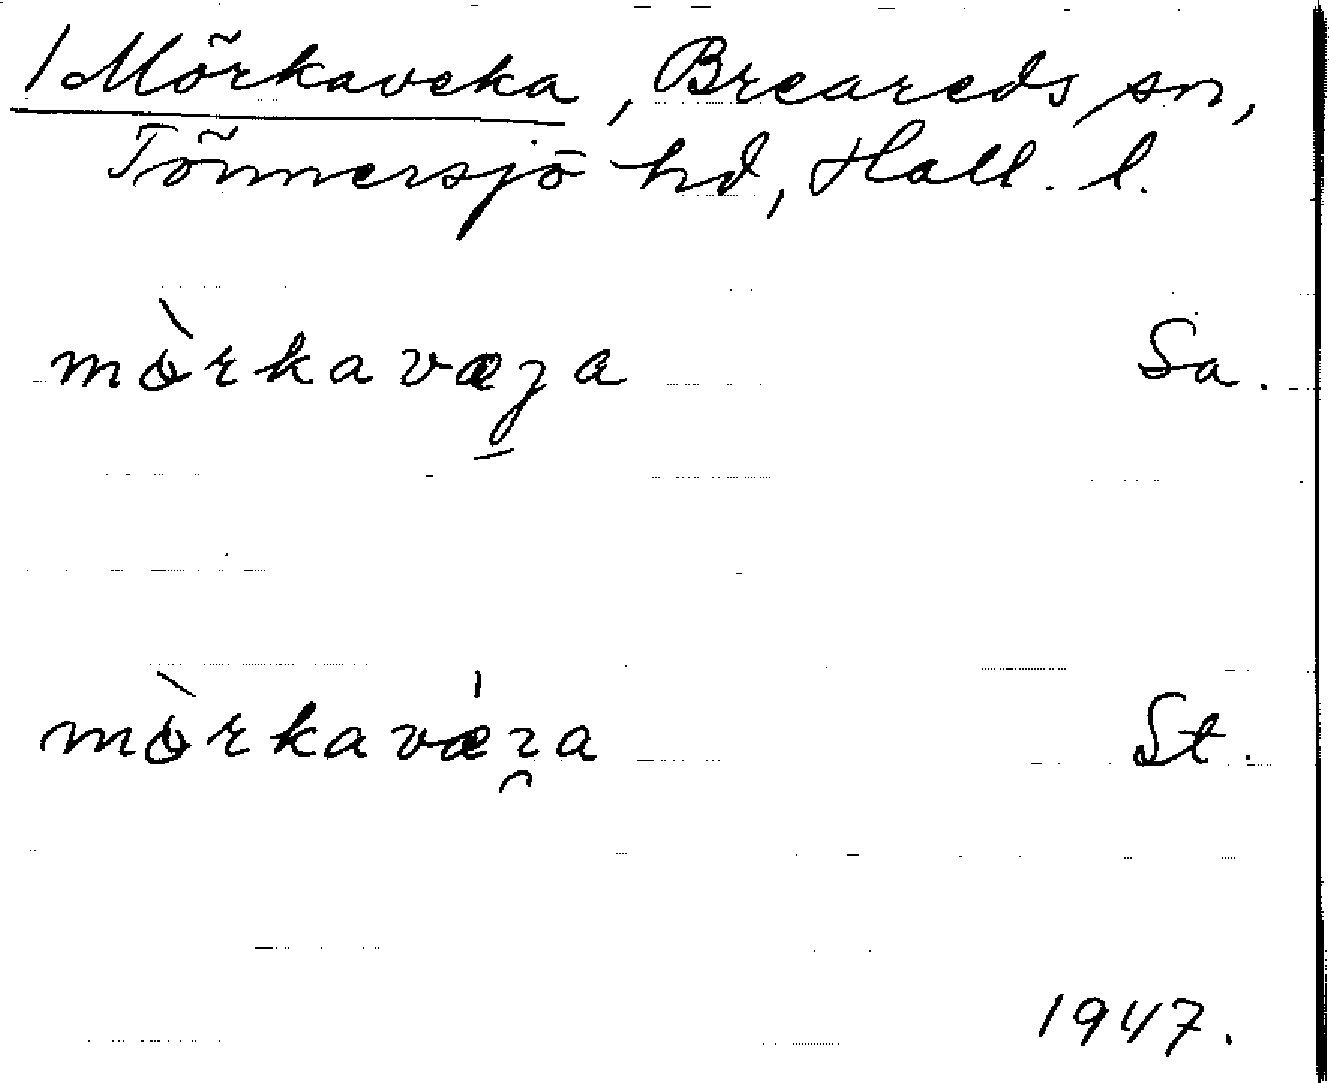 /Mörkaveka, Breareds sn,
Tönnersjö hd, Hall. l.
mòrkavæga Sa.
mòrkavǽɀ̯a St.
1947.